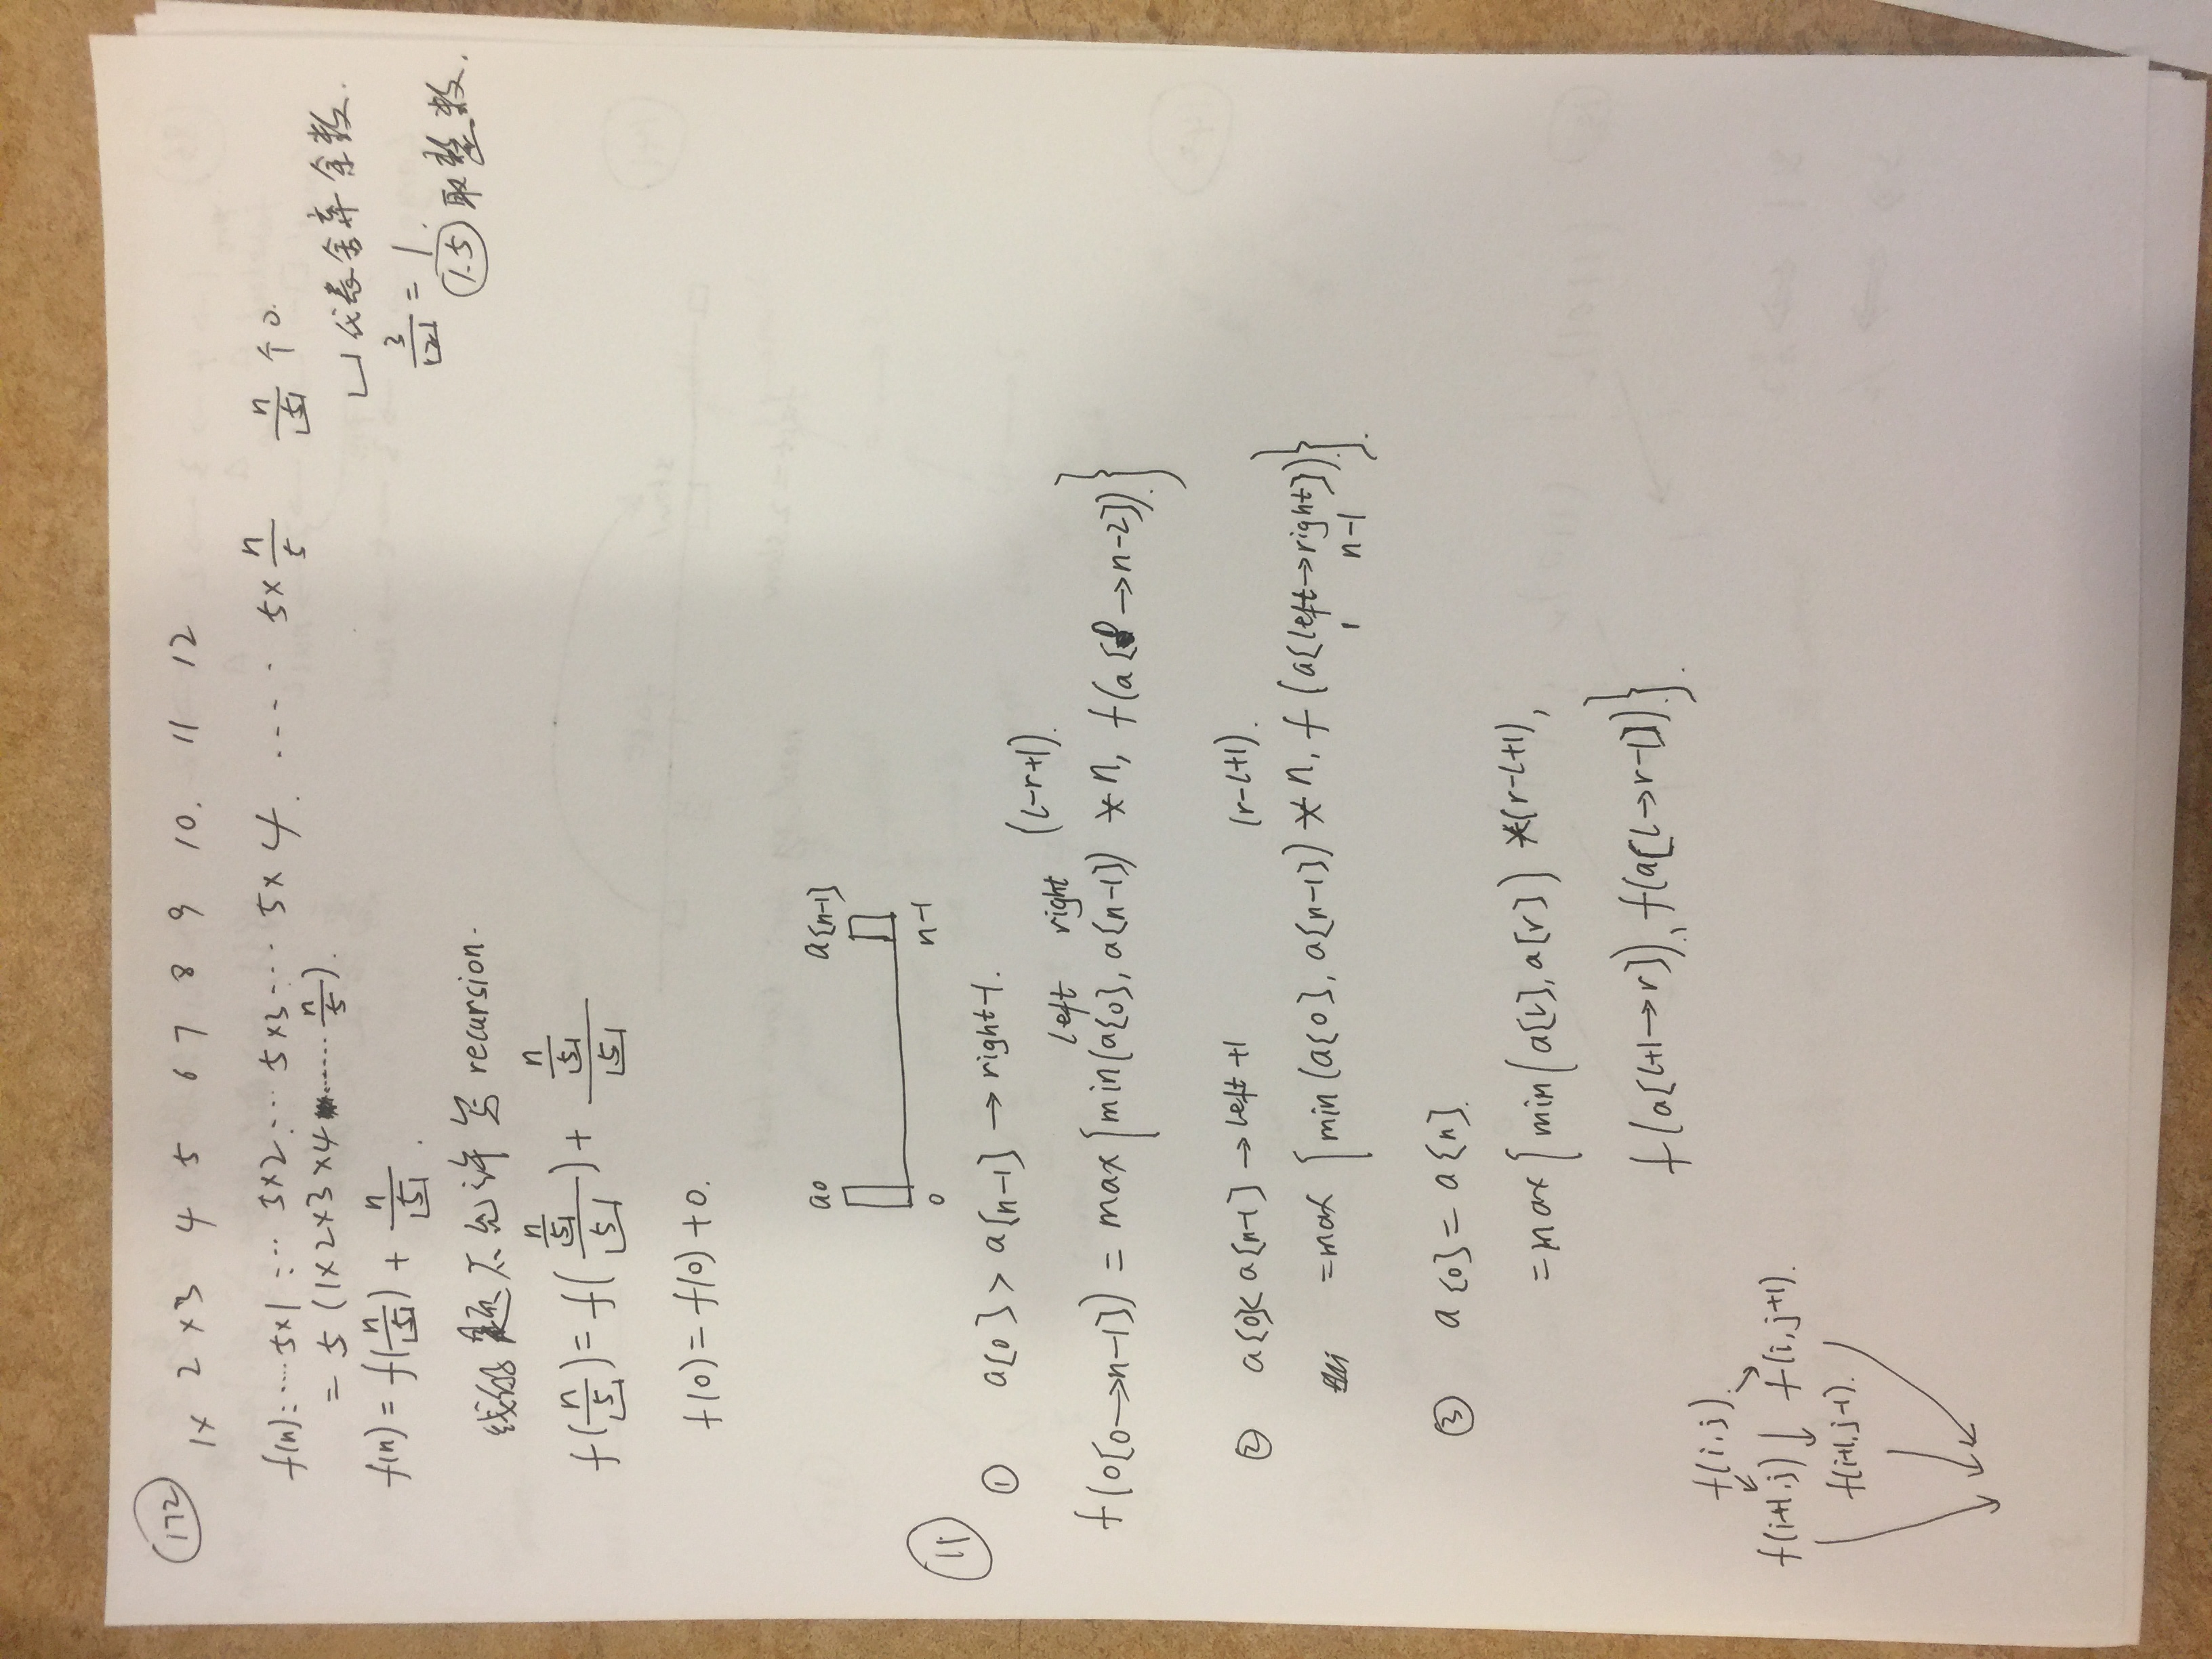 172
1× 2 ×3 4 5 6 7 8 9 10. 11 12
f(n): ... 5×1 ... 5×2 ... 5×3 ... 5×4 ..... 5×n/5 n/⌊5⌋ 个0.
= 5 (1×2×3×4 ...... n/5).
⌊⌋代表舍弃余数.
f(n) = f(n/⌊5⌋) + n/⌊5⌋.
3/⌊2⌋ = 1.
1.5 取整数.
题不允许写 recursion.
f(n/⌊5⌋) = f((n/⌊5⌋)/⌊5⌋) + (n/⌊5⌋)/⌊5⌋
f(0) = f(0) + 0.
a0 a[n-1]
0 n-1
11
① a[0] > a[n-1] → right-1.
left right (l-r+1).
f(0[0→n-1]) = max{min(a[0], a[n-1]) * n, f(a[0→n-2])}
② a[0]< a[n-1] → left+1 (r-l+1).
=max {min(a[0], a[n-1]) * n, f(a[left→right])}.
1 n-1
③ a[0] = a[n].
=max{min(a[l], a[r]) *(r-l+1),
f(a[l+1→r]), f(a[l→r-1])}.
f(i,j).
f(i+1,j) ↓ f(i,j+1).
f(i+1,j-1).